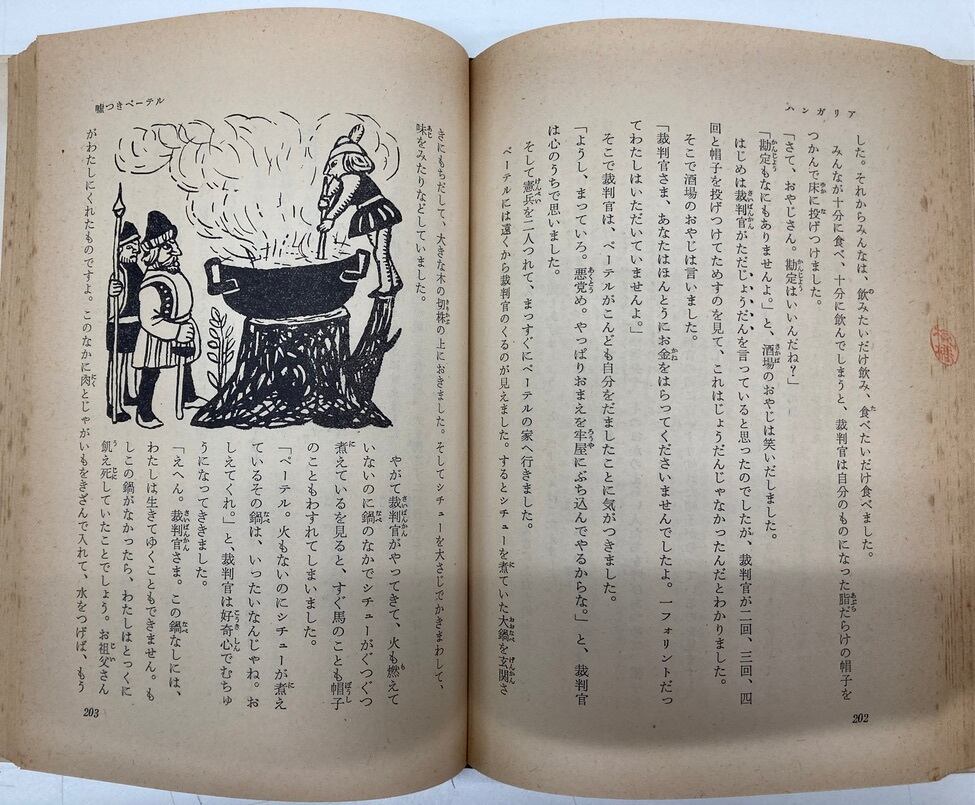 ハンガリア
した。それからみんなは、飲みたいだけ飲み、食べたいだけ食べました。
みんなが十分に食べ、十分に飲んでしまうと、裁判官は自分のものになった脂だらけの帽子を
つかんで床に投げつけました。
「さて、おやじさん。勘定はいいんだね？」
「勘定もなにもありませんよ。」と、酒場のおやじは笑いだしました。
はじめは裁判官がただじょうだんを言っていると思ったのでしたが、裁判官が二回、三回、四
回と帽子を投げつけてためすのを見て、これはじょうだんじゃなかったんだとわかりました。
そこで酒場のおやじは言いました。
「裁判官さま、あなたはほんとうにお金をはらってくださいませんでしたよ。一フォリントだっ
てわたしはいただいていませんよ。」
そこで裁判官は、ペーテルがこんども自分をだましたことに気がつきました。
「ようし、まっていろ。悪党め。やっぱりおまえを牢屋にぶち込んでやるからな。」と、裁判官
は心のうちで思いました。
そして憲兵を二人つれて、まっすぐにペーテルの家へ行きました。
ペーテルには遠くから裁判官のくるのが見えました。するとシチューを煮ていた大鍋を玄関さ
202
嘘つきペーテル
きにもちだして、大きな木の切株の上におきました。そしてシチューを大さじでかきまわして、
味をみたりなどしていました。
やがて裁判官がやってきて、火も燃えて
いないのに鍋のなかでシチューがぐつぐつ
煮えているを見ると、すぐ馬のことも帽子
のこともわすれてしまいました。
「ペーテル。火もないのにシチューが煮え
ているその鍋は、いったいなんじゃね。お
しえてくれ。」と、裁判官は好奇心でむちゅ
うになってききました。
「えへん。裁判官さま。この鍋なしには、
わたしは生きてゆくこともできません。も
しこの鍋がなかったら、わたしはとっくに
飢え死していたことでしょう。お祖父さん
がわたしにくれたものですよ。このなかに肉とじゃがいもをきざんで入れて、水をつげば、もう
203